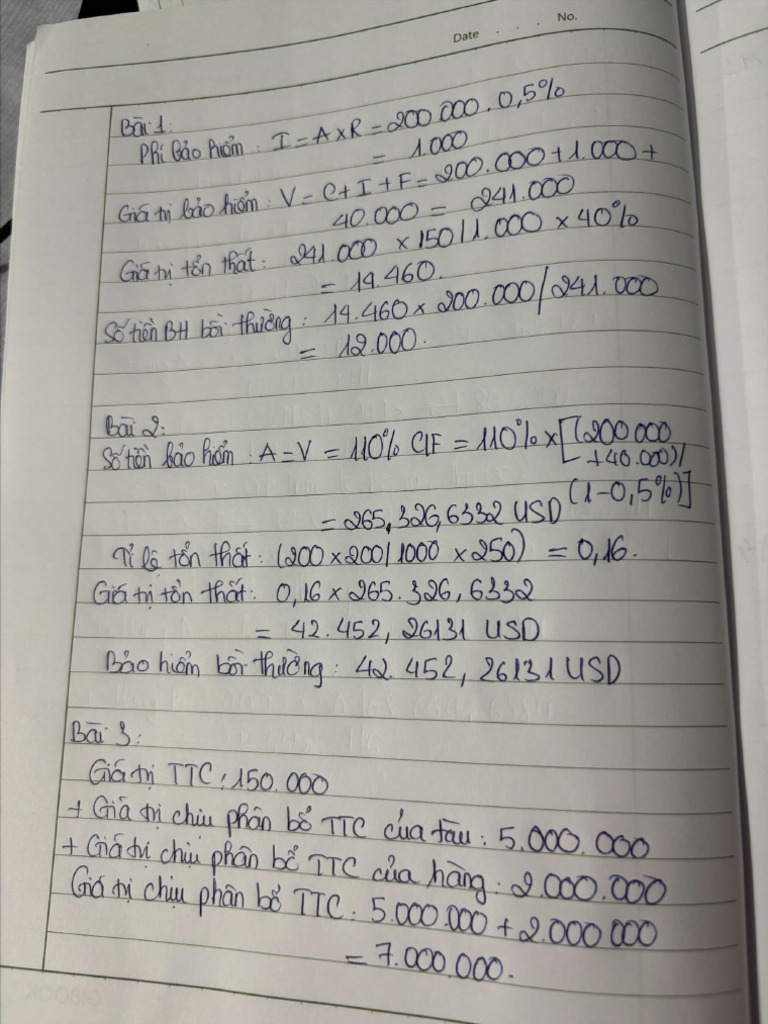 Date . . . No.
Bài 1:
Phí bảo hiểm : I = A x R = 200 000 . 0,5%
= 1.000
Giá trị bảo hiểm : V = C + I + F = 200.000 + 1.000 +
40.000 = 241.000
Giá trị tổn thất : 241.000 x 150 | 1.000 x 40%
= 14.460.
Số tiền BH bồi thường : 14.460 x 200.000 / 241.000
= 12.000.
Bài 2:
Số tiền bảo hiểm : A = V = 110% CIF = 110% x [(200 000
+ 40.000) /
(1 - 0,5%)]
= 265,326,6332 USD
Tỉ lệ tổn thất : (200 x 200 | 1000 x 250) = 0,16.
Giá trị tổn thất : 0,16 x 265.326,6332
= 42.452, 26131 USD
Bảo hiểm bồi thường : 42.452, 26131 USD
Bài 3:
Giá trị TTC : 150.000
+ Giá trị chịu phân bổ TTC của tàu : 5.000.000
+ Giá trị chịu phân bổ TTC của hàng : 2.000.000
Giá trị chịu phân bổ TTC : 5.000.000 + 2.000 000
= 7.000.000.